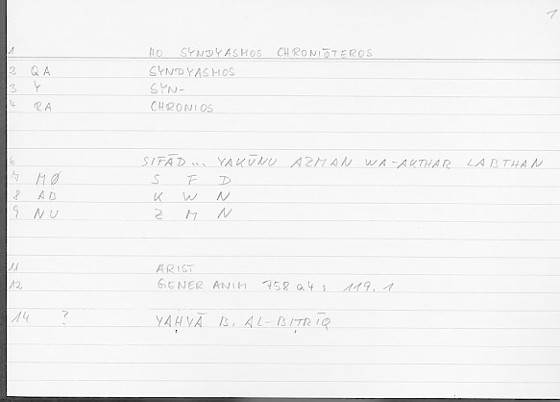 1
1 HO SYNDYASMOS CHRONIŌTEROS
2 QA SYNDYASMOS
3 Y SYN-
4 RA CHRONIOS
6 SIFĀD ... YAKŪNU AZMAN WA-AKTHAR LABTHAN
7 MØ S F D
8 AB K W N
9 NU Z M N
11 ARIST
12 GENER ANIM 758 a4 ; 119.1
14 ? YAḤYĀ B. AL-BIṬRĪQ